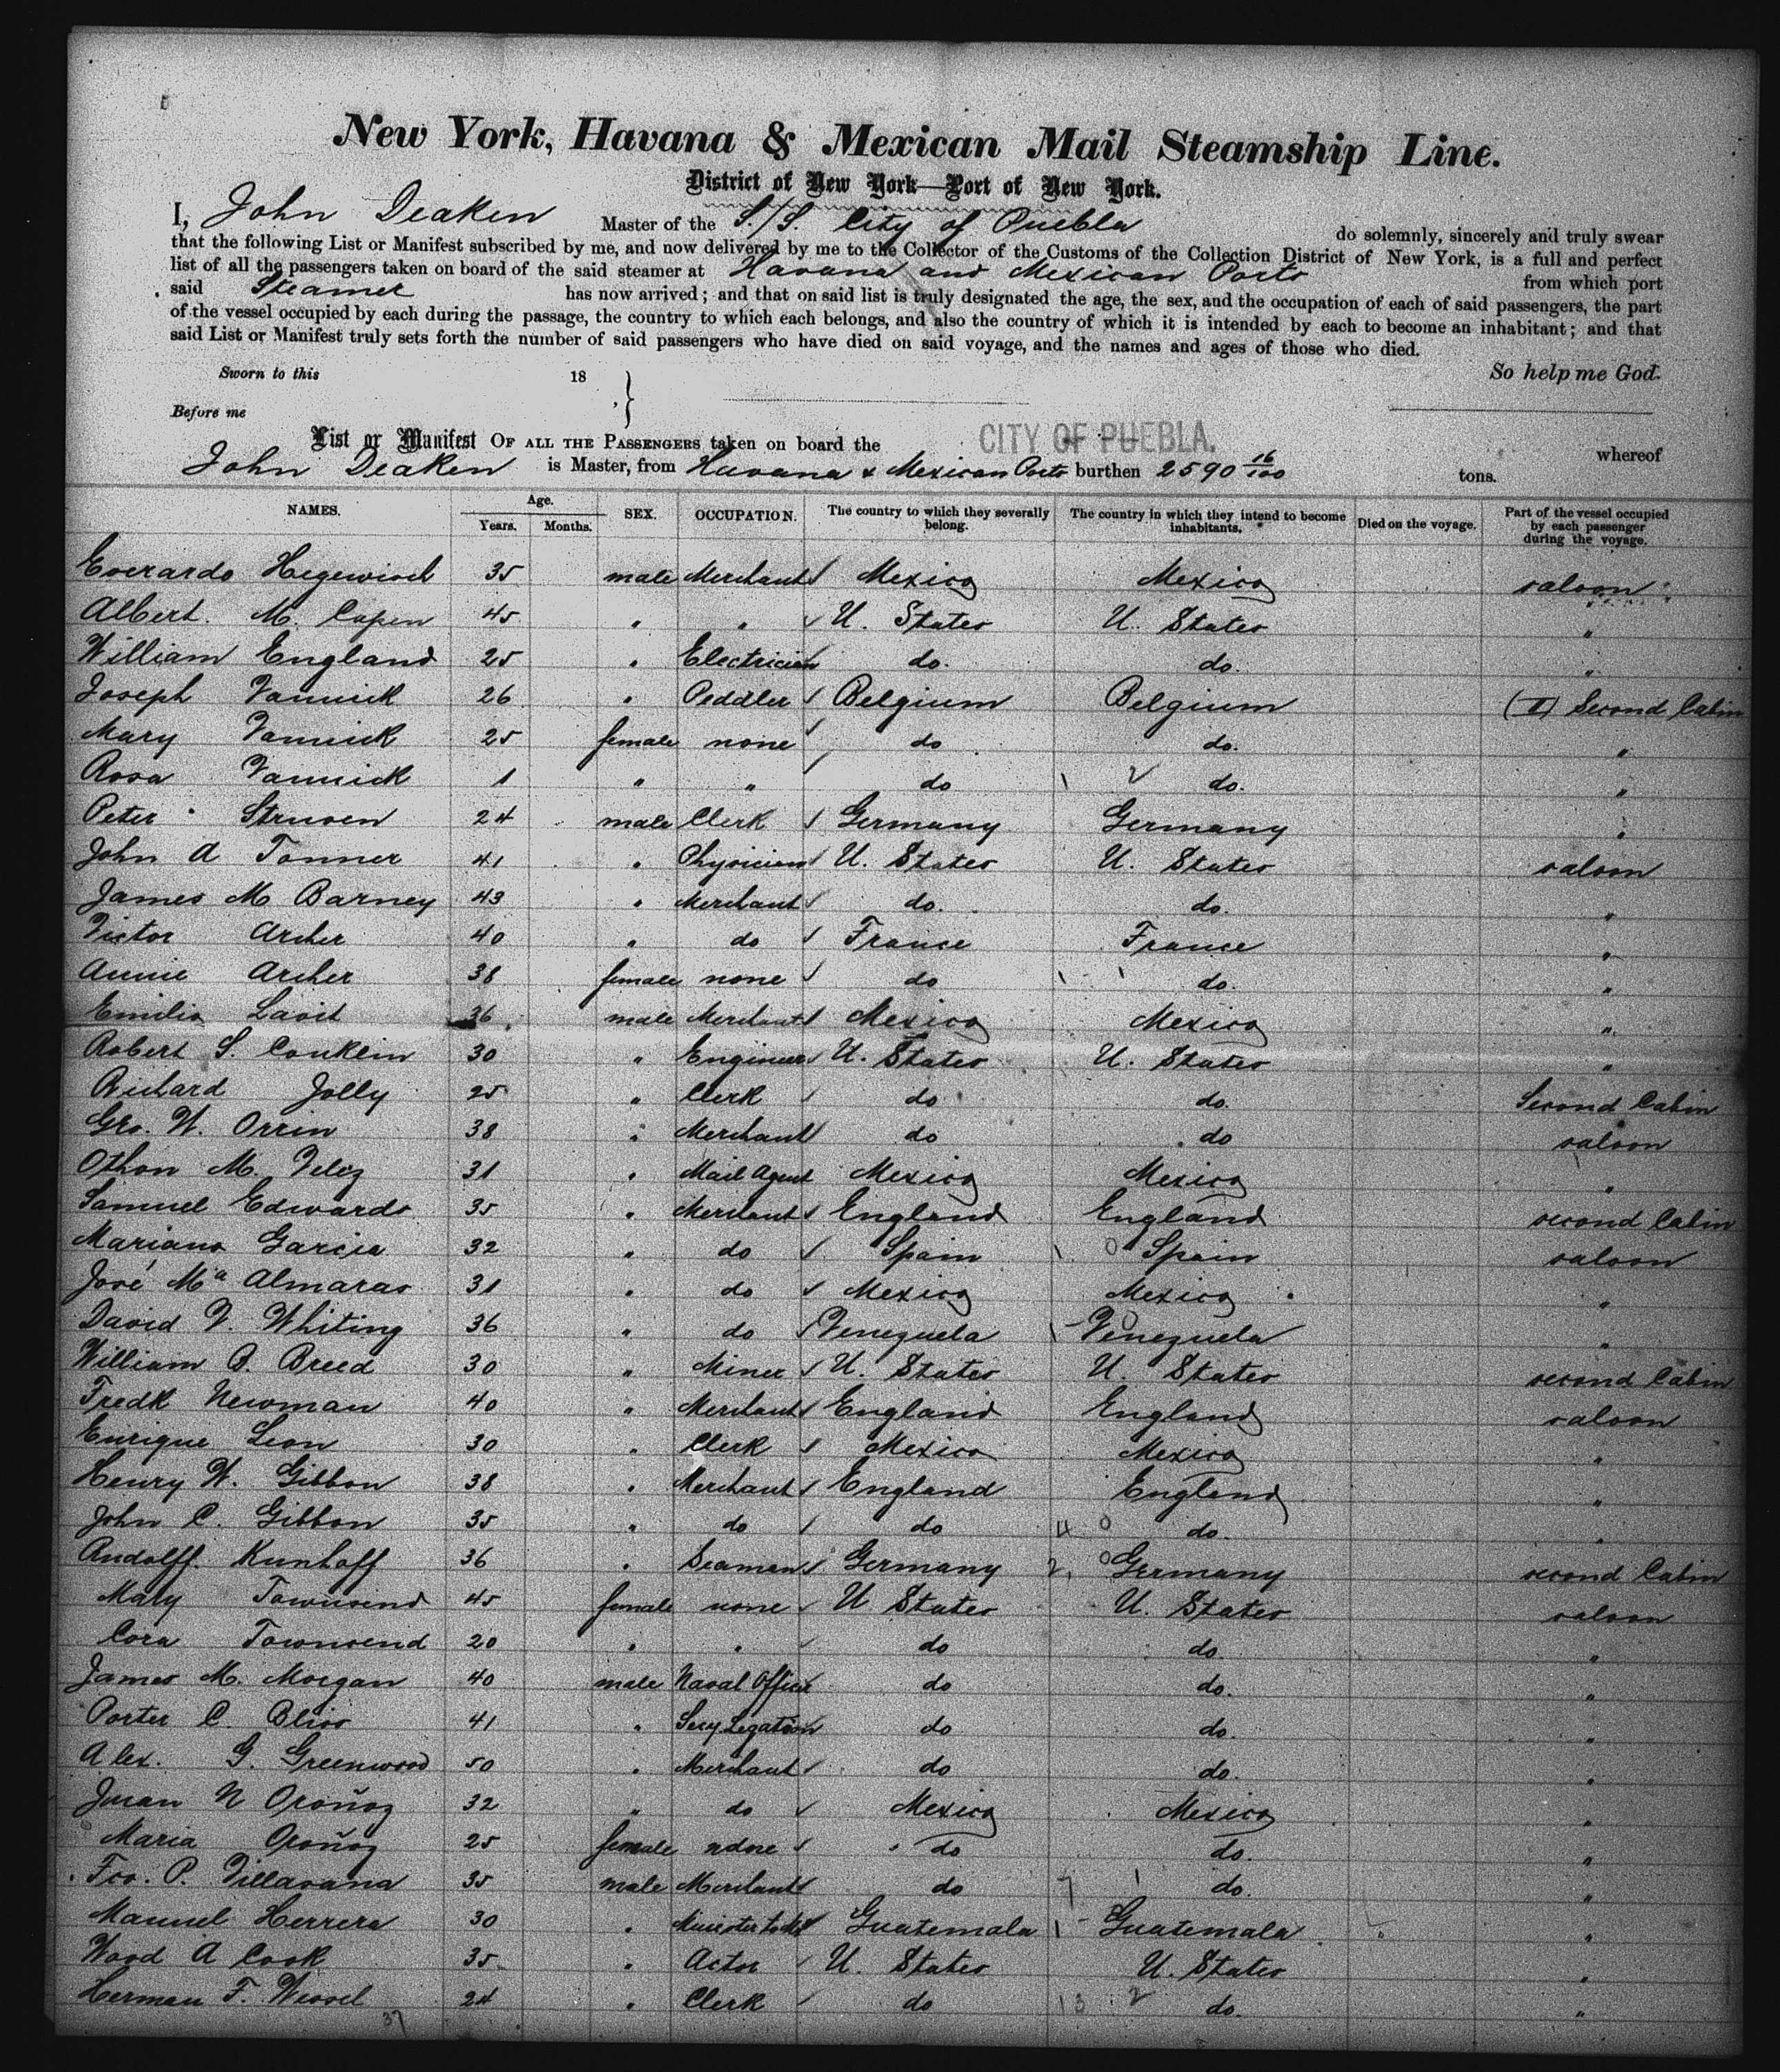 New York, Havana & Mexican Mail Steamship Line.
District of New York—Port of New York.
I, John Deaken Master of the S/S. City of Puebla do solemnly, sincerely and truly swear
that the following List or Manifest subscribed by me, and now delivered by me to the Collector of the Customs of the Collection District of New York, is a full and perfect
list of all the passengers taken on board of the said steamer at Havana and Mexican Ports from which port
said Steamer has now arrived; and that on said list is truly designated the age, the sex, and the occupation of each of said passengers, the part
of the vessel occupied by each during the passage, the country to which each belongs, and also the country of which it is intended by each to become an inhabitant; and that
said List or Manifest truly sets forth the number of said passengers who have died on said voyage, and the names and ages of those who died.
Sworn to this 18 So help me God.
Before me
List or Manifest OF ALL THE PASSENGERS taken on board the CITY OF PUEBLA. whereof
John Deaken is Master, from Havana & Mexican Ports burthen 2590 16/100 tons.
NAMES. Age. Years. Months. SEX. OCCUPATION. The country to which they severally belong. The country in which they intend to become inhabitants. Died on the voyage. Part of the vessel occupied by each passenger during the voyage.
Everardo Hegewisch 35 male Merchant Mexico Mexico saloon
Albert. M. Capen 45 " " U. States U. States "
William England 25 " Electrician do. do. "
Joseph Vannick 26 " Peddler Belgium Belgium (II) Second Cabin
Mary Vannick 25 female none do do. "
Rosa Vannick 1 " " do do. "
Peter Struven 24 male Clerk Germany Germany "
John A Tonner 41 " Physician U. States U. States saloon
James M Barney 43 " Merchant do. do. "
Victor Archer 40 " do France France "
Annie Archer 38 female none do do. "
Emilio Lavit 36 male Merchant Mexico Mexico "
Robert S. Conklin 30 " Engineer U. States U. States "
Richard Jolly 25 " Clerk do do. Second Cabin
Geo. W. Orrin 38 " Merchant do do saloon
Othon M. Velez 31 " Mail Agent Mexico Mexico "
Samuel Edwards 35 " Merchant England England second Cabin
Mariano Garcia 32 " do Spain Spain saloon
José Ma Almaras 31 " do Mexico Mexico "
David V. Whiting 36 " do Venezuela Venezuela "
William B. Breed 30 " Miner U. States U. States second Cabin
Fredk Newman 40 " Merchant England England saloon
Enrique Leon 30 " Clerk Mexico Mexico "
Henry W. Gibbon 38 " Merchant England England "
John C. Gibbon 35 " do do do. "
Rudolff Kunhoff 36 " Seaman Germany Germany second Cabin
Mary Townsend 45 female none U States U. States saloon
Cora Townsend 20 " " do do. "
James M. Morgan 40 male Naval Officer do do. "
Porter C. Bliss 41 " Secy Legation do do. "
Alex. G. Greenwood 50 " Merchant do do. "
Juan N Oroñoz 32 " do Mexico Mexico "
Maria Oroñoz 25 female none do do. "
Fco. P. Villasana 35 male Merchant do do. "
Manuel Herrera 30 " Minister Guatemala Guatemala "
Wood A Cook 35 " Actor U. States U. States "
Herman F. Wessel 24 " Clerk do do. "
37